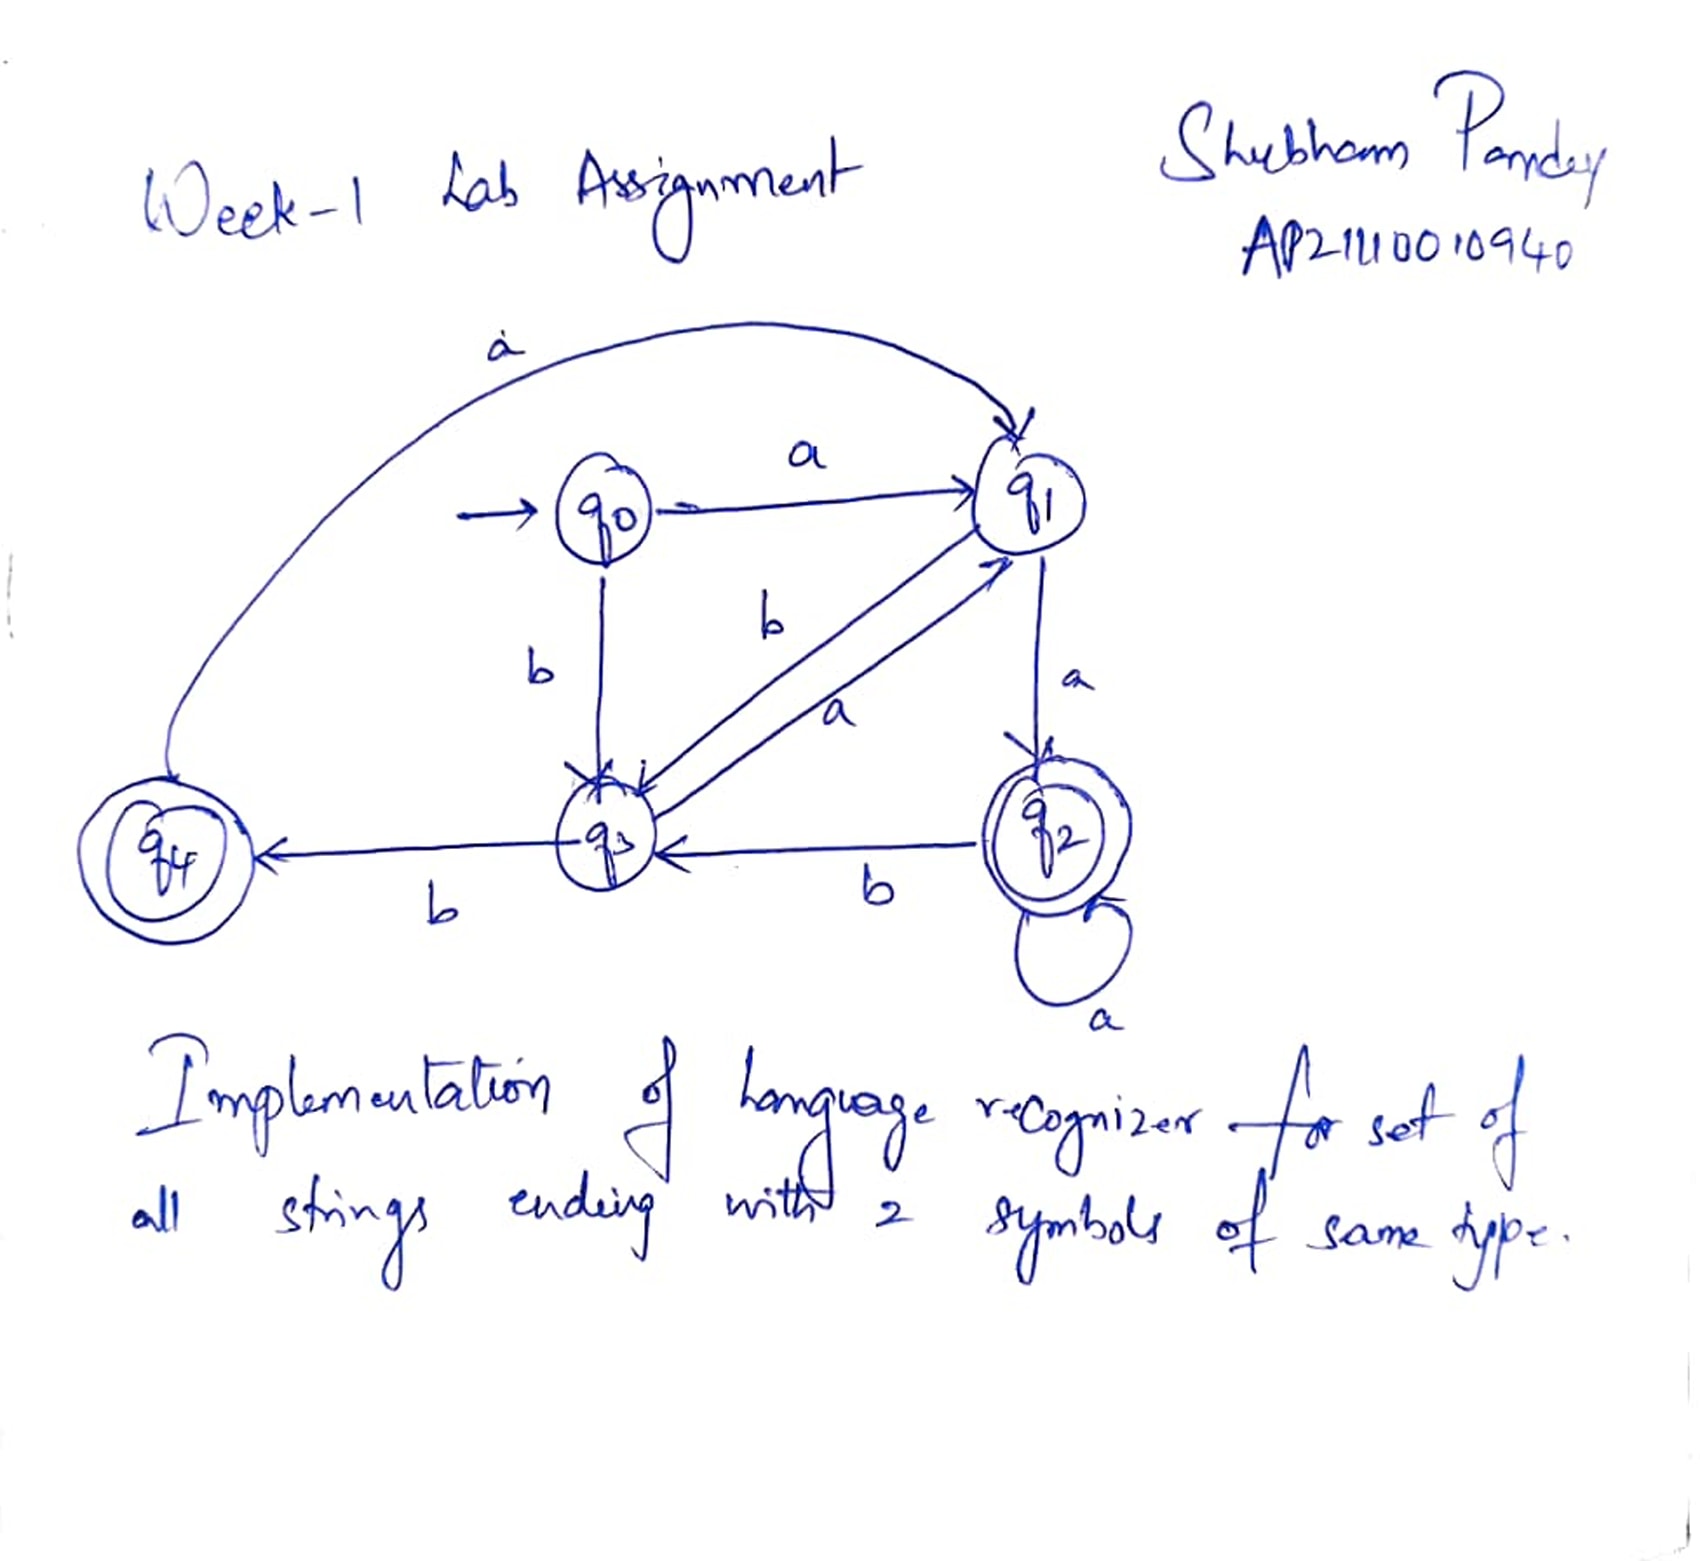 Week-1 Lab Assignment
Shubham Pandey
AP21110010940
a
a
q0
q1
b
b
a
a
q4
q3
q2
b
b
a
Implementation of Language recognizer for set of
all strings ending with 2 symbols of same type.